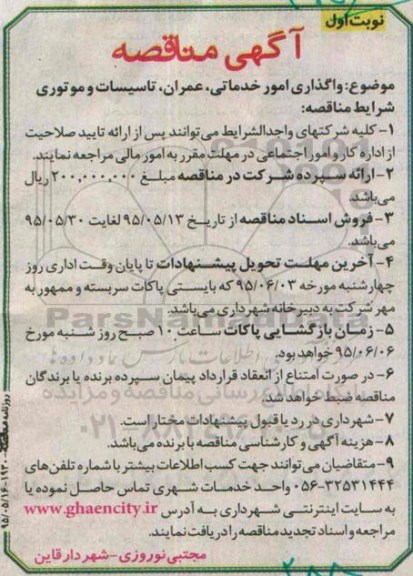 نوبت اول
آگهی مناقصه
موضوع: واگذاری امور خدماتی، عمران، تاسیسات و موتوری
شرایط مناقصه:
۱- کلیه شرکتهای واجدالشرایط می‌توانند پس از ارائه تایید صلاحیت
از اداره کار و امور اجتماعی در مهلت مقرر به امور مالی مراجعه نمایند.
۲- ارائه سپرده شرکت در مناقصه مبلغ ۲۰۰,۰۰۰,۰۰۰ ریال
می‌باشد.
۳- فروش اسناد مناقصه از تاریخ ۹۵/۰۵/۱۳ لغایت ۹۵/۰۵/۳۰
می‌باشد.
۴- آخرین مهلت تحویل پیشنهادات تا پایان وقت اداری روز
چهارشنبه مورخه ۹۵/۰۶/۰۳ که بایستی پاکات سربسته و ممهور به
مهر شرکت به دبیرخانه شهرداری می‌باشد.
۵- زمان بازگشایی پاکات ساعت ۱۰ صبح روز شنبه مورخ
۹۵/۰۶/۰۶ خواهد بود.
۶- در صورت امتناع از انعقاد قرارداد پیمان سپرده برنده یا برندگان
مناقصه ضبط خواهد شد.
۷- شهرداری در رد یا قبول پیشنهادات مختار است.
۸- هزینه آگهی و کارشناسی مناقصه با برنده می‌باشد.
۹- متقاضیان می‌توانند جهت کسب اطلاعات بیشتر با شماره تلفن‌های
۰۵۶-۳۲۵۳۱۴۴۴ واحد خدمات شهری تماس حاصل نموده یا
به سایت اینترنتی شهرداری به آدرس www.ghaencity.ir
مراجعه و اسناد تجدید مناقصه را دریافت نمایند.
مجتبی نوروزی - شهردار قاین